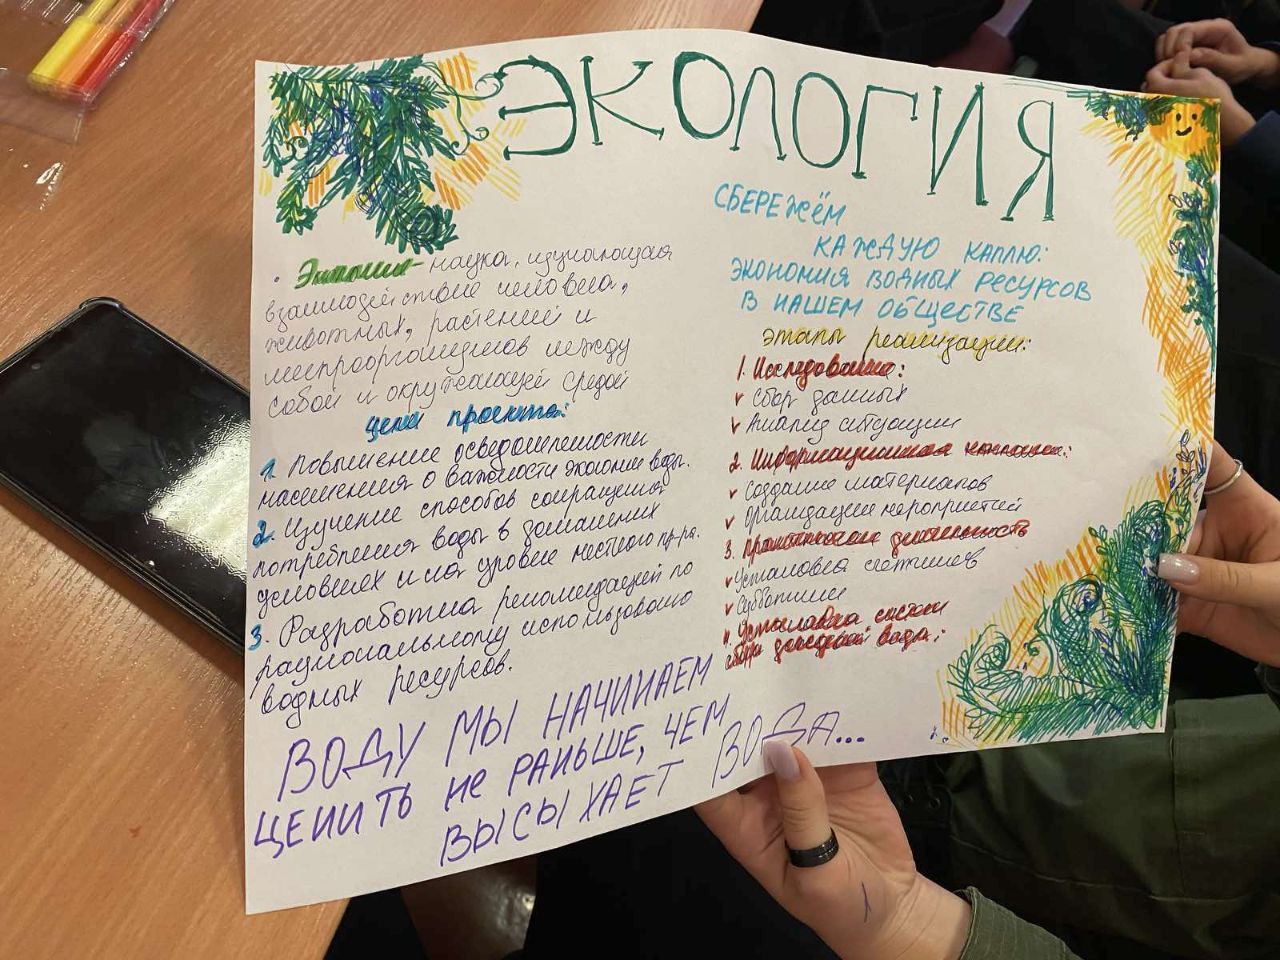 ЭКОЛОГИЯ
• Экология - наука, изучающая
взаимодействие человека,
животных, растений и
микроорганизмов между
собой и окружающей средой
цели проекта:
1. Повышение осведомленности
населения о важности экономии воды.
2. Изучение способов сокращения
потребления воды в домашних
условиях и на уровне местного пр-ра.
3. Разработка рекомендаций по
рациональному использованию
водных ресурсов.
СБЕРЕЖЁМ
КАЖДУЮ КАПЛЮ:
ЭКОНОМИЯ ВОДНЫХ РЕСУРСОВ
В НАШЕМ ОБЩЕСТВЕ
этапы реализации:
1. Исследование:
✓ Сбор данных
✓ Анализ ситуации
2. Информационная кампания:
✓ Создание материалов
✓ Организация мероприятий
3. практическая деятельность
✓ Установка счетчиков
✓ Субботники
4. Установка систем
сбора дождевой воды:
ВОДУ МЫ НАЧИНАЕМ
ЦЕНИТЬ НЕ РАНЬШЕ, ЧЕМ
ВЫСЫХАЕТ ВОДА...